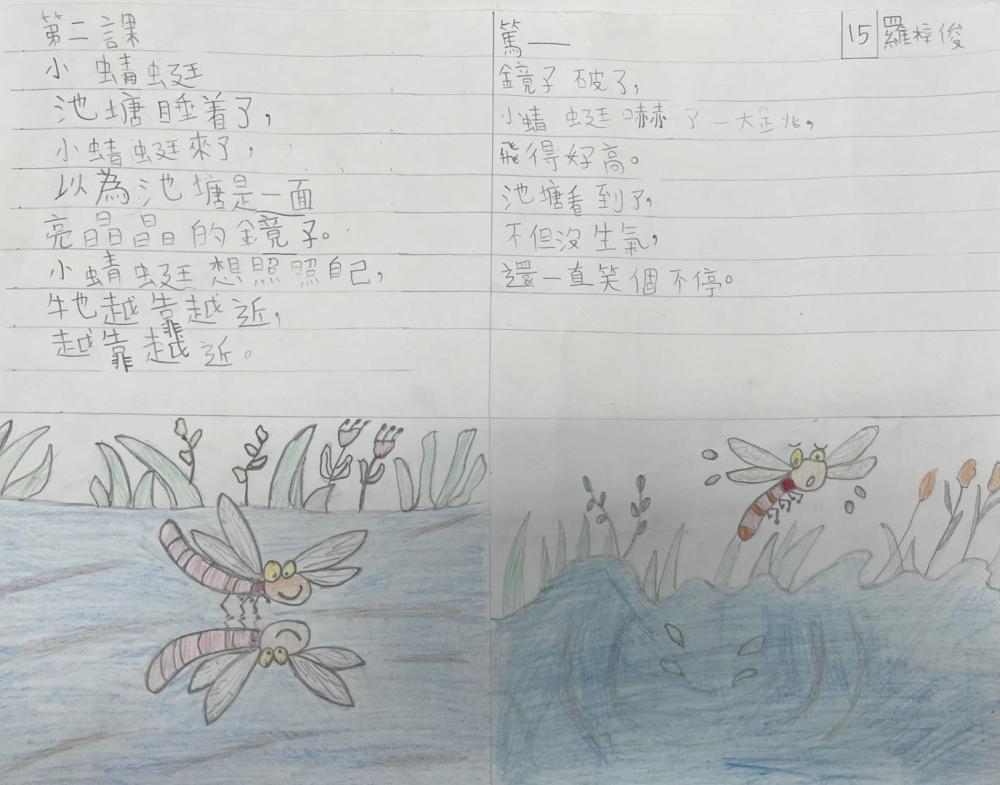 第二課
小蜻蜓
池塘睡着了，
小蜻蜓來了，
以為池塘是一面
亮晶晶的鏡子。
小蜻蜓想照照自己，
牠越靠越近，
越靠越近。
篤一
15 羅梓俊
鏡子破了，
小蜻蜓嚇了一大跳，
飛得好高。
池塘看到了，
不但沒生氣，
還一直笑個不停。